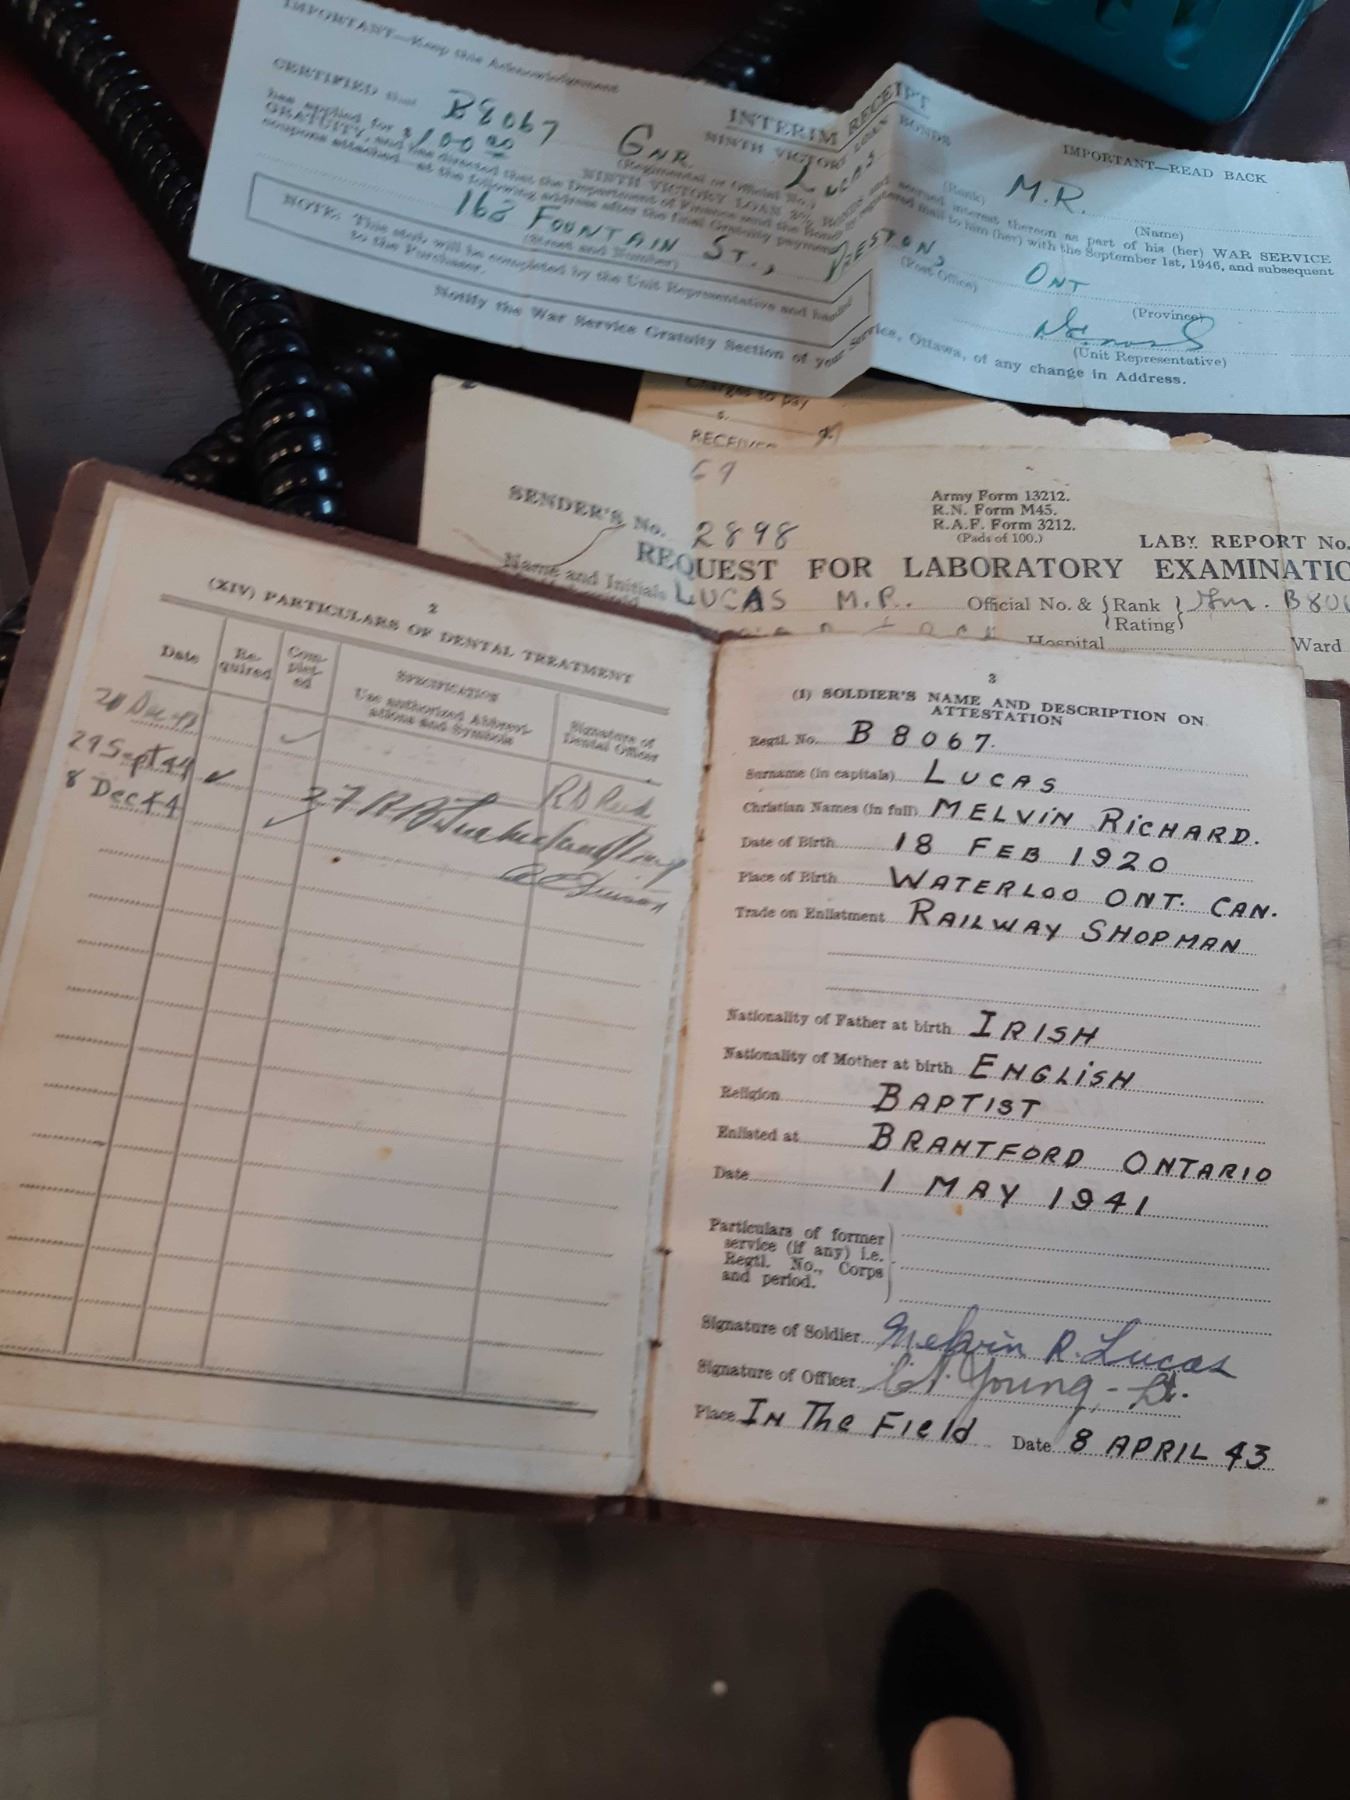 IMPORTANT—Keep this Acknowledgement
INTERIM RECEIPT
NINTH VICTORY LOAN BONDS
IMPORTANT—READ BACK
CERTIFIED that B8067 GNR. LUCAS M.R.
(Regimental or Official No.) (Rank) (Name)
has applied for $100.00 NINTH VICTORY LOAN 3% BONDS and accrued interest thereon as part of his (her) WAR SERVICE
GRATUITY, and has directed that the Department of Finance send the Bonds by registered mail to him (her) with the September 1st, 1946, and subsequent
coupons attached at the following address after the final Gratuity payment
168 FOUNTAIN ST., PRESTON, ONT
(Street and Number) (Post Office) (Province)
NOTE: This stub will be completed by the Unit Representative and handed
to the Purchaser.
(Unit Representative)
Notify the War Service Gratuity Section of your Service, Ottawa, of any change in Address.
Charges to pay
s.
RECEIVED
SENDER'S No. 2898
Army Form 13212.
R.N. Form M45.
R.A.F. Form 3212.
(Pads of 100.)
LABY. REPORT No.
REQUEST FOR LABORATORY EXAMINATIO
Name and Initials LUCAS M.R. Official No. & Rank Gnr. B80
Rating
Hospital Ward
2
(XIV) PARTICULARS OF DENTAL TREATMENT
Date Re-quired Com-plet-ed SPECIFICATION Use authorized Abbrevi-ations and Symbols Signature of Dental Officer
29 Sept 44 ✓
8 Dec 44 ✓
3
(I) SOLDIER'S NAME AND DESCRIPTION ON
ATTESTATION
Regtl. No. B 8067.
Surname (in capitals) LUCAS
Christian Names (in full) MELVIN RICHARD.
Date of Birth 18 FEB 1920
Place of Birth WATERLOO ONT. CAN.
Trade on Enlistment RAILWAY SHOPMAN
Nationality of Father at birth IRISH
Nationality of Mother at birth ENGLISH
Religion BAPTIST
Enlisted at BRANTFORD ONTARIO
Date 1 MAY 1941
Particulars of former
service (if any) i.e.
Regtl. No., Corps
and period.
Signature of Soldier Melvin R. Lucas
Signature of Officer Young, Lt.
Place IN The FIeld Date 8 APRIL 43